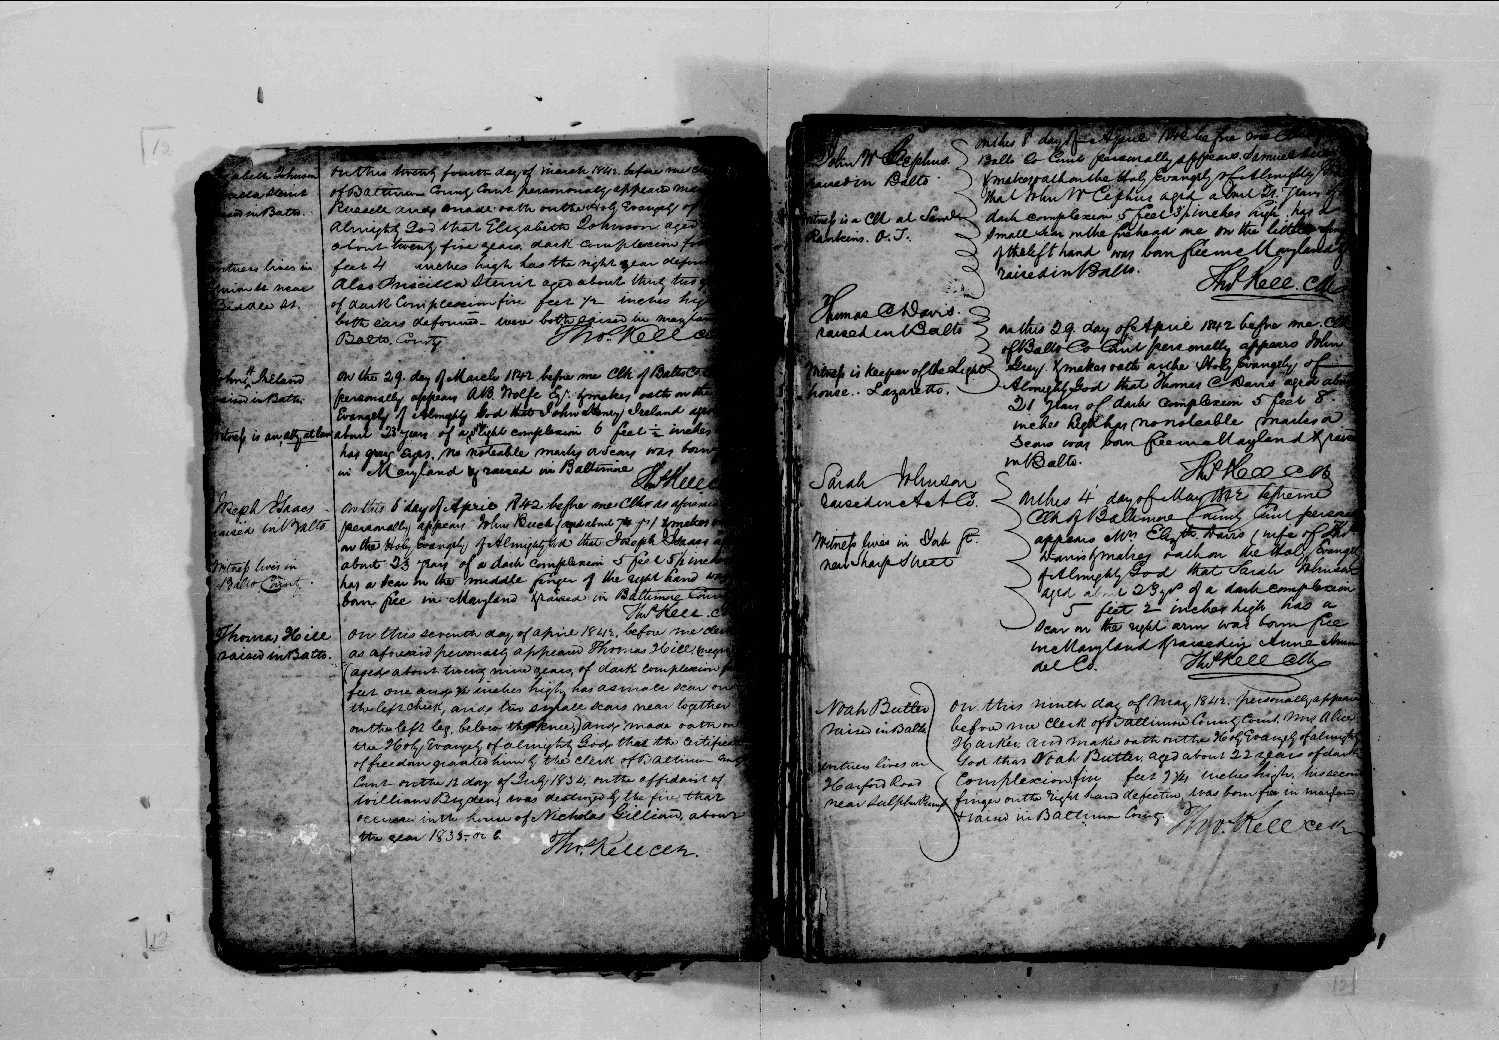 on this twenty fourth day of march 1842. before me
of Baltimore County Court personally appeared
Russell and made oath on the Holy Evangely of
Almighty God that Elizabeth Johnson aged
about twenty five years, dark complexion
feet 4 inches high has the right ear
Also Priscilla Sterrit aged about thirty two
of dark Complexion five feet 1/2 inches
both ears deformed - were both raised in
Balto. County Thos. Kell
raised in Balto.
witness lives in
near
St.
John H Ireland
raised in Balto.
witness is an atty at law
on the 29. day of March 1842 before me Clk of Balto
personally appears A.B. Wolfe & makes oath on the
Evangely of Almighty God that John Henry Ireland aged
about 23 years of a light complexion 6 feet 1/2 inches
has grey Eyes. no noteable marks or scars was born
in Maryland & raised in Baltimore
Thos Kell
Joseph Isaacs
raised in Balto
witness lives in
Balto County.
on this 6 day of April 1842 before me Clk as aforesaid
personally appears John & makes
on the Holy Evangely of Almighty God that Joseph Isaacs
about 23 years of a dark complexion 5 feet 5 1/2
has a scar on the middle finger of the right hand was
born free in Maryland & raised in Baltimore
Thos Kell.
Thomas Hill
raised in Balto.
on this seventh day of april 1842, before me
as aforesaid personally appeared Thomas Hill
(aged about twenty nine years, of dark complexion
feet one and 1/2 inches high, has a small scar on
the left cheek, and two small scars near together
on the left leg, below the knee,) and made oath on
the Holy Evangely of almighty God, that the
of freedom granted him by the clerk of Baltimore
Court on the 12 day of July 1834, on the affidavit of
William Bryden, was destroyed by the fire, that
occurred in the house of Nicholas Gilliard, about
the year 1835- or 6.
Thos. Kell clk.
John W Cephus.
raised in Balto.
witness is a Clk at
on this 8 day of April 1842 before me
Balto Co Court personally appears Samuel
& makes oath on the Holy Evangely of Almighty
that John W Cephus aged about 29 years
dark complexion 5 feet 3 1/2 inches high. has a
small scar on the forehead one on the little
of the left hand was born free in Maryland &
raised in Balto.
Thos Kell. Clk
Thomas C Davis.
raised in Balto
Witness is keeper of the Light
house.. Lazaretto.
on this 29 day of April 1842 before me. Clk
of Balto Co Court personally appears John
Gray. & makes oath on the Holy Evangely of
Almighty God that Thomas C Davis aged about
21 years of dark complexion 5 feet 8
inches high has no noteable marks or
scars was born free in Maryland &
in Balto.
Thos Kell Clk
Sarah Johnson
raised in A A Co.
Witness lives in York St.
near Sharp Street
on this 4 day of May 1842 before me
Clk of Baltimore County Court
appears Mrs Elizth Davis (wife of Thos
Davis) & makes oath on the Holy Evangely
of Almighty God that Sarah Johnson
aged about 23 yrs of a dark complexion
5 feet 2 inches high has a
scar on the right arm was born free
in Maryland & raised in Anne Arun
del Co. Thos Kell Clk
Noah Butler
raised in Balto
witness lives on
Harford Road
near
on this ninth day of May 1842. personally appeared
before me clerk of Baltimore County Court, Mrs Alice
Harker, and makes oath on the Holy Evangely of almighty
God that Noah Butler, aged about 22 years of dark
Complexion five feet 7 1/4 inches high, his second
finger on the right hand defective, was born free in maryland
& raised in Baltimore County.
Thos. Kell clk
12
12
12